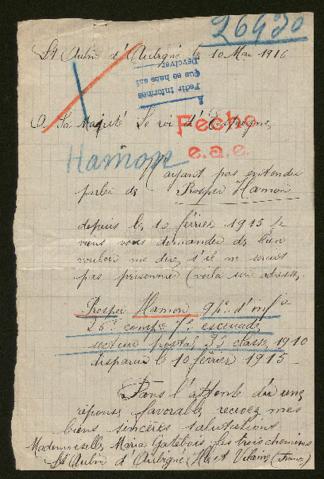 26430
St Aubin d'Aubigné le 10 Mai 1916
Pedir informes
que se hace así
Devolver.
A Sa Majesté Le roi d'Espagne,
Fecho
e.a.e.
Hamon
ayant pas entendu
parler de Prosper Hamon
depuis le 10 février 1915 je
viens vous demander de bien
vouloir me dire, s'il ne serait
pas prisonnier (voila son adresse,
Prosper Hamon, d'inf
26e comp 7e escouade
secteur postal 93 classe 1910
disparu le 10 février 1915
Dans l'attente d'une
réponse favorable, recevez mes
bien sincères salutations
Mademoiselle Maria Gatebois les trois chemins
St Aubin d'Aubigné Ille et Vilaine (France)